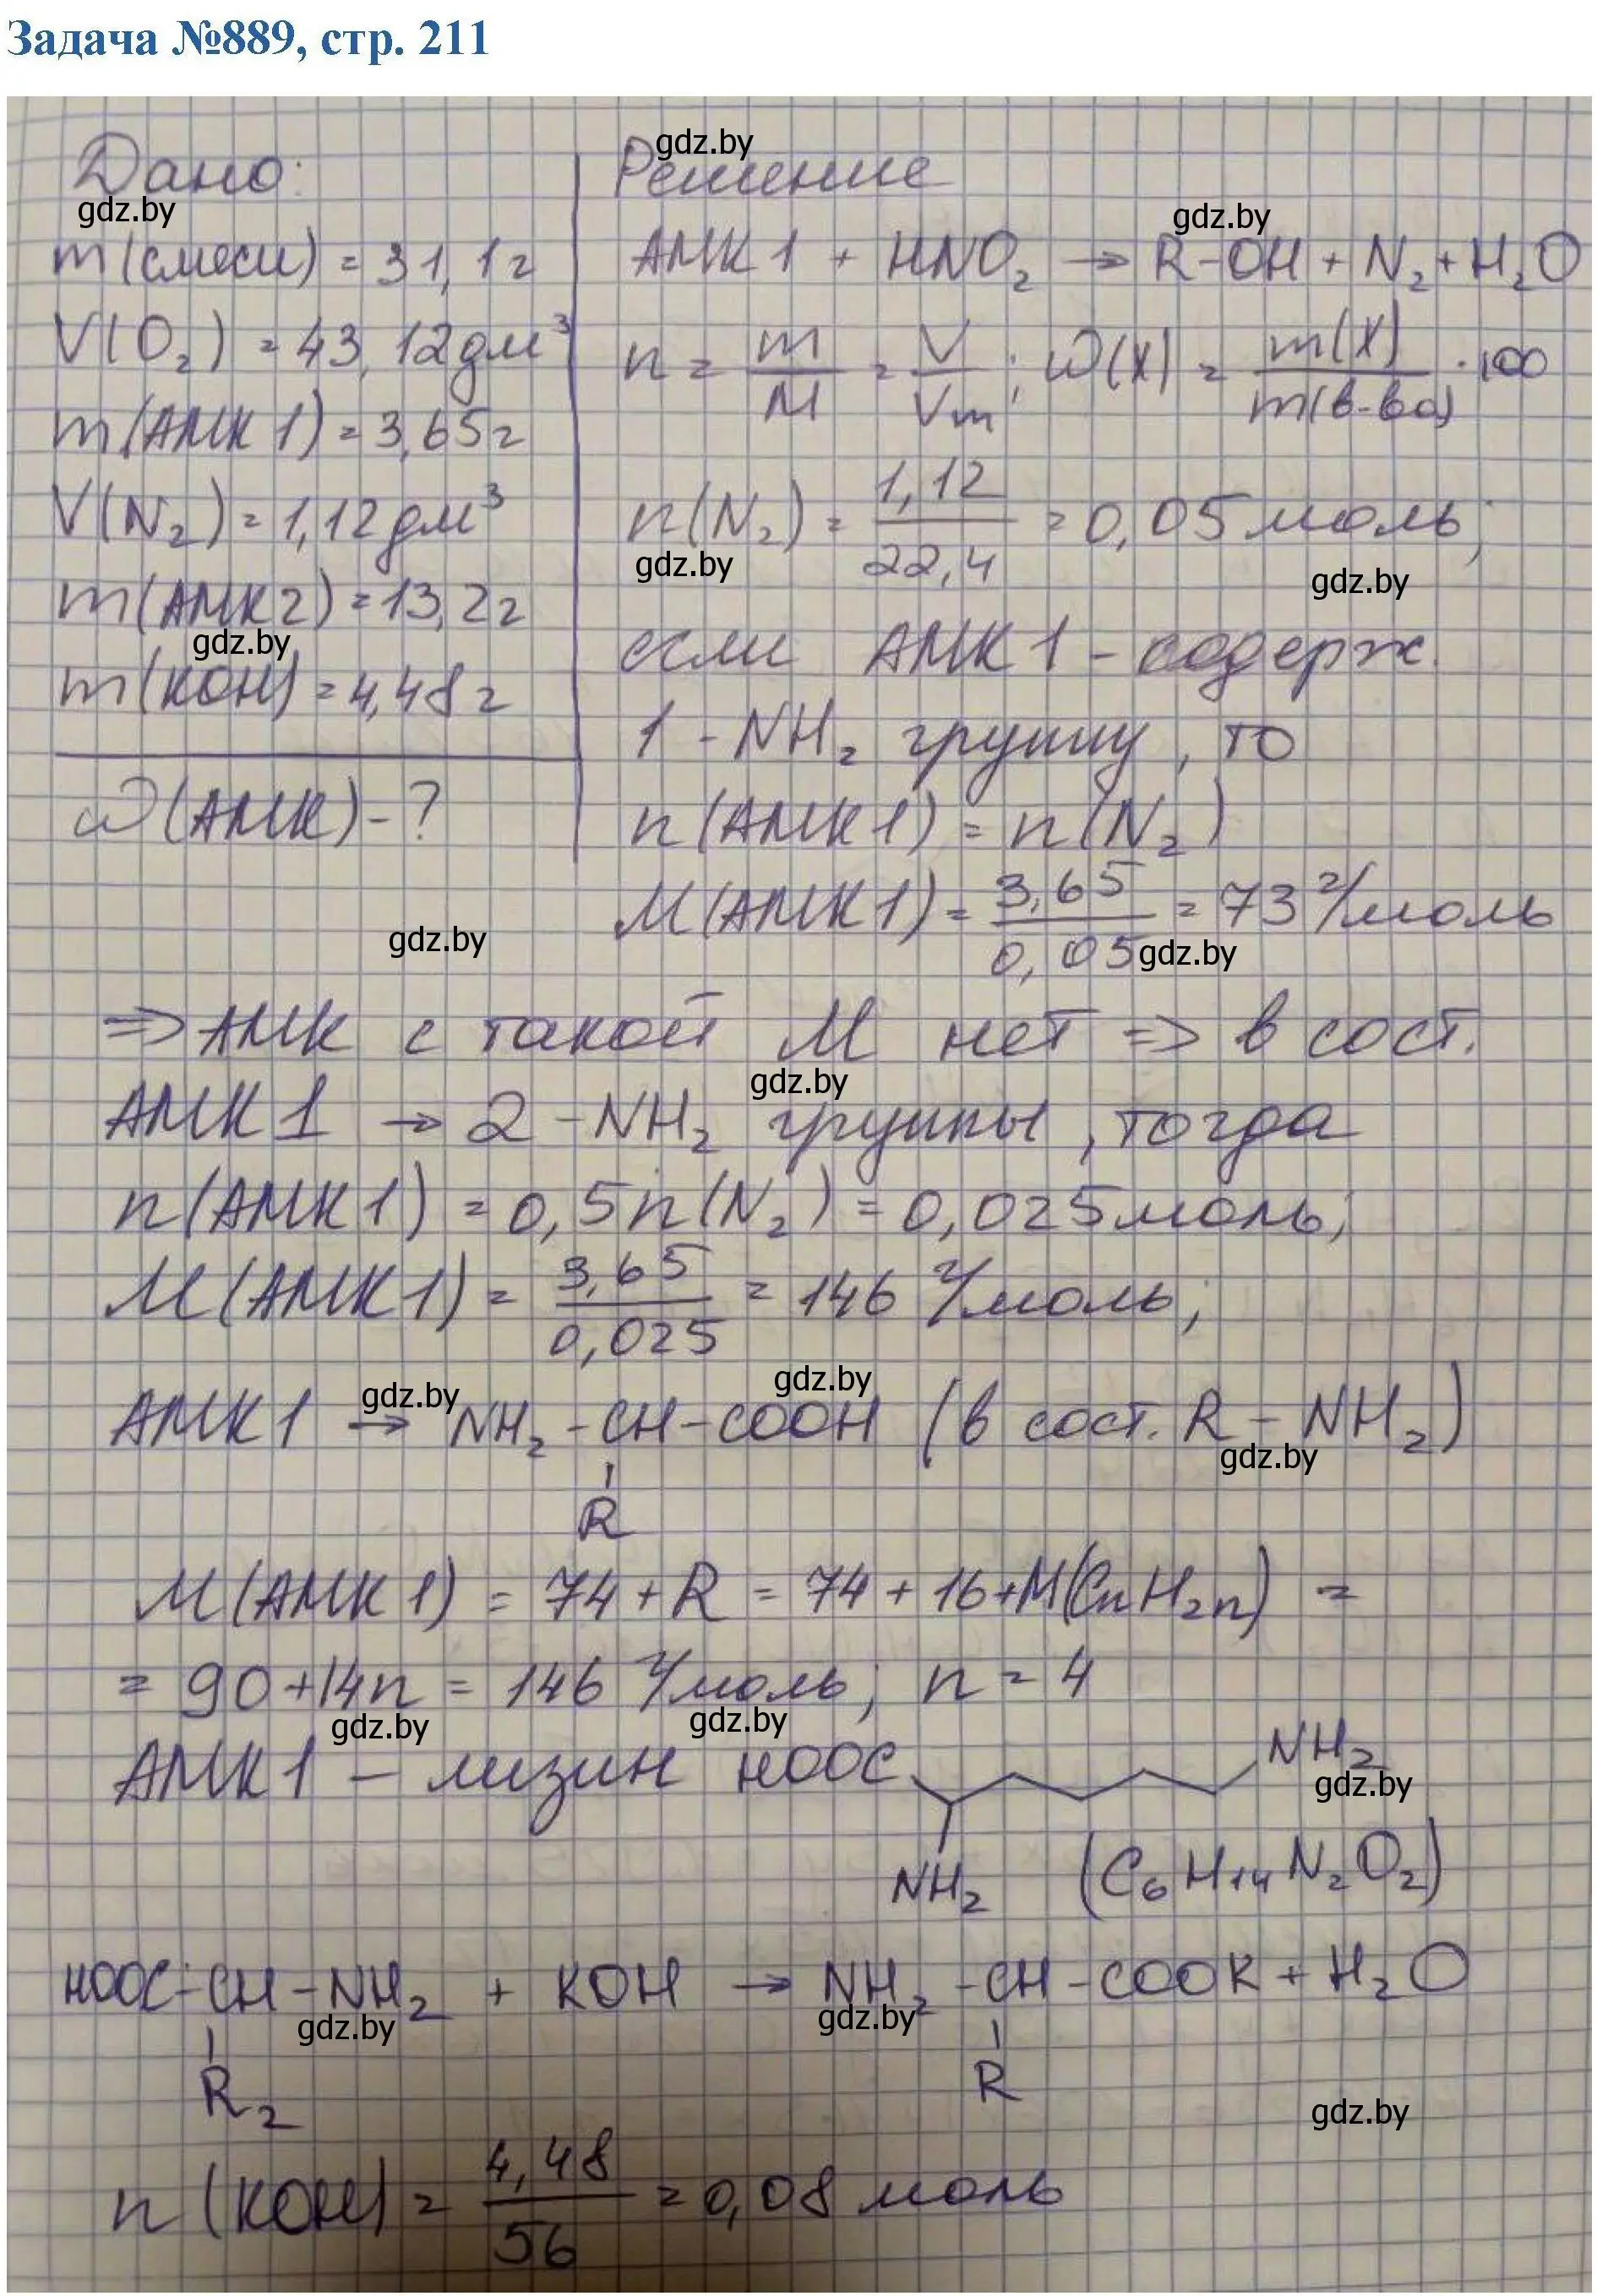 Задача №889, стр. 211
gdz.by
Дано:
gdz.by
m(смеси) = 31,1г
V(O₂) = 43,12дм³
m(АМК1) = 3,65г
V(N₂) = 1,12дм³
m(АМК2) = 13,2г
gdz.by
m(KOH) = 4,48г
ω(АМК) - ?
gdz.by
Решение
gdz.by
АМК1 + HNO₂ → R-OH + N₂ + H₂O
n = m/M = V/Vm; ω(X) = m(X)/m(в-ва) · 100
n(N₂) = 1,12/22,4 = 0,05 моль;
gdz.by
gdz.by
если АМК1 - содерж.
1 - NH₂ группу, то
n(АМК1) = n(N₂)
M(АМК1) = 3,65/0,05 = 73 г/моль
gdz.by
⇒ АМК с такой M нет ⇒ в сост.
gdz.by
АМК1 → 2 -NH₂ группы, тогда
n(АМК1) = 0,5n(N₂) = 0,025моль;
M(АМК1) = 3,65/0,025 = 146 г/моль;
gdz.by
gdz.by
АМК1 → NH₂ - CH - COOH (в сост. R - NH₂)
gdz.by
R
M(АМК1) = 74 + R = 74 + 16 + M(CnH₂n) =
= 90 + 14n = 146 г/моль; n = 4
gdz.by
gdz.by
АМК1 - лизин HOOC NH₂
gdz.by
NH₂ (C₆H₁₄N₂O₂)
HOOC - CH - NH₂ + KOH → NH₂ - CH - COOK + H₂O
gdz.by
gdz.by
R₂ R
gdz.by
n(KOH) = 4,48/56 = 0,08 моль